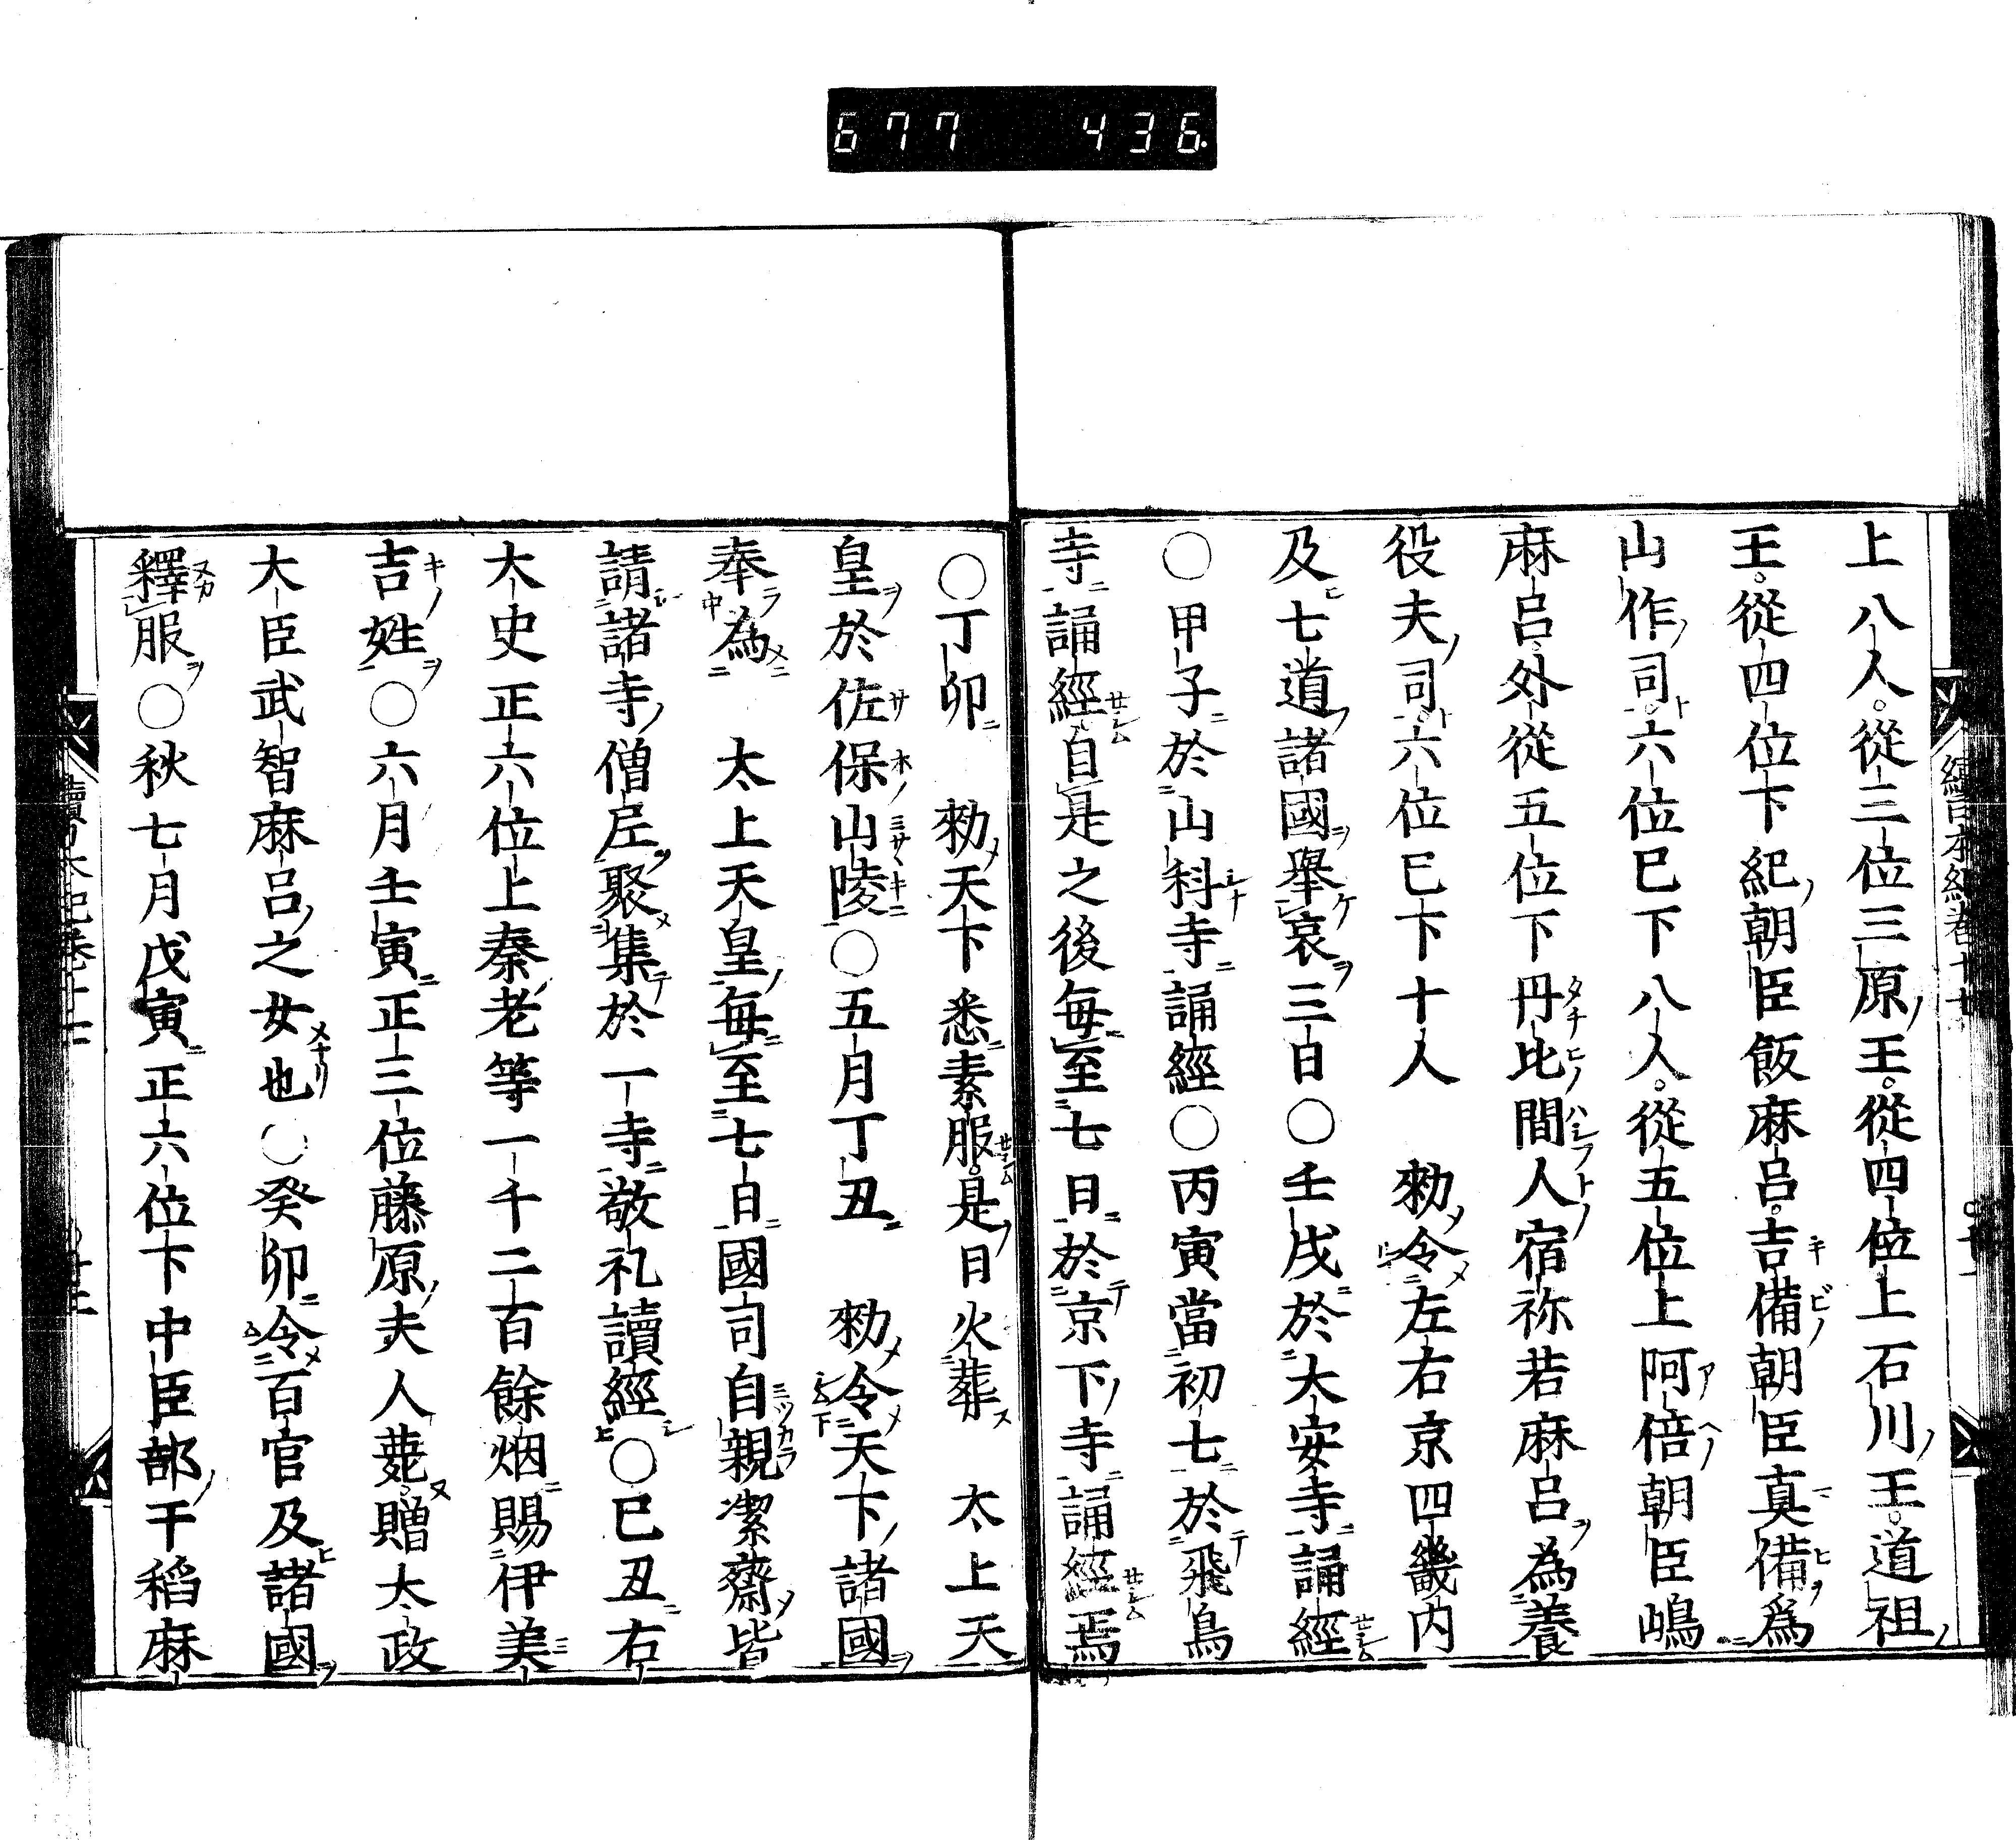 677 436.
上八人。從三位三原王。從四位上石川王。道祖
王。從四位下紀朝臣飯麻呂。吉備朝臣真備爲
山作司。六位已下八人。從五位上阿倍朝臣嶋
麻呂。外從五位下丹比間人宿祢若麻呂為養
役夫司。六位已下十人　勑令左右京四畿内
及七道諸國舉哀三日〇壬戌於大安寺誦經
〇甲子於山科寺誦經〇丙寅當初七於飛鳥
寺誦經自是之後毎至七日於京下寺誦經焉
〇丁卯　勑天下悉素服。是日火葬　太上天
皇於佐保山陵〇五月丁丑　勑令天下諸國
奉為　太上天皇毎至七日國司自親潔齋皆
請諸寺僧尼聚集於一寺敬礼讀經〇已丑右
大史正六位上秦老等一千二百餘烟賜伊美
吉姓〇六月壬寅正三位藤原夫人薨。贈太政
大臣武智麻呂之女也〇癸卯令百官及諸國
釋服〇秋七月戊寅正六位下中臣部干稻麻